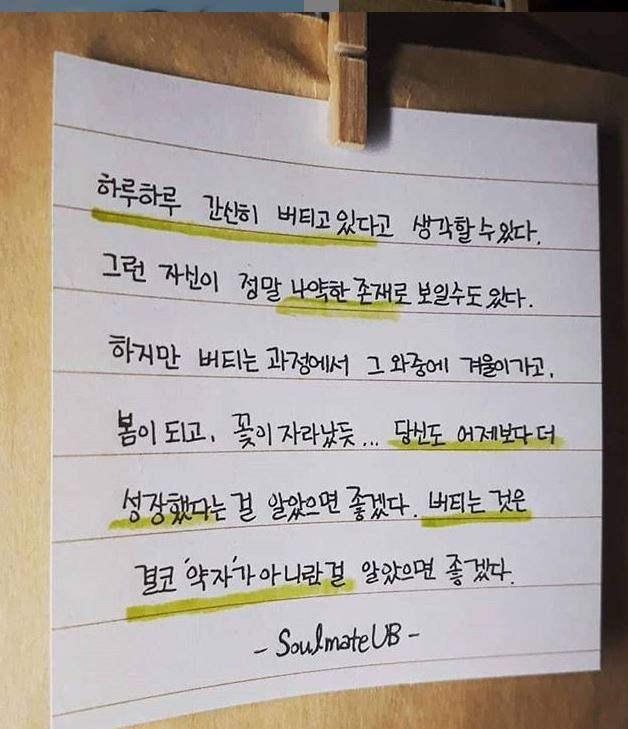 하루하루 간신히 버티고 있다고 생각할 수 있다.
그런 자신이 정말 나약한 존재로 보일수도 있다.
하지만 버티는 과정에서 그 와중에 겨울이 가고,
봄이 되고, 꽃이 자라났듯... 당신도 어제보다 더
성장했다는 걸 알았으면 좋겠다. 버티는 것은
결코 '약자'가 아니란 걸 알았으면 좋겠다.
- SoulmateUB -